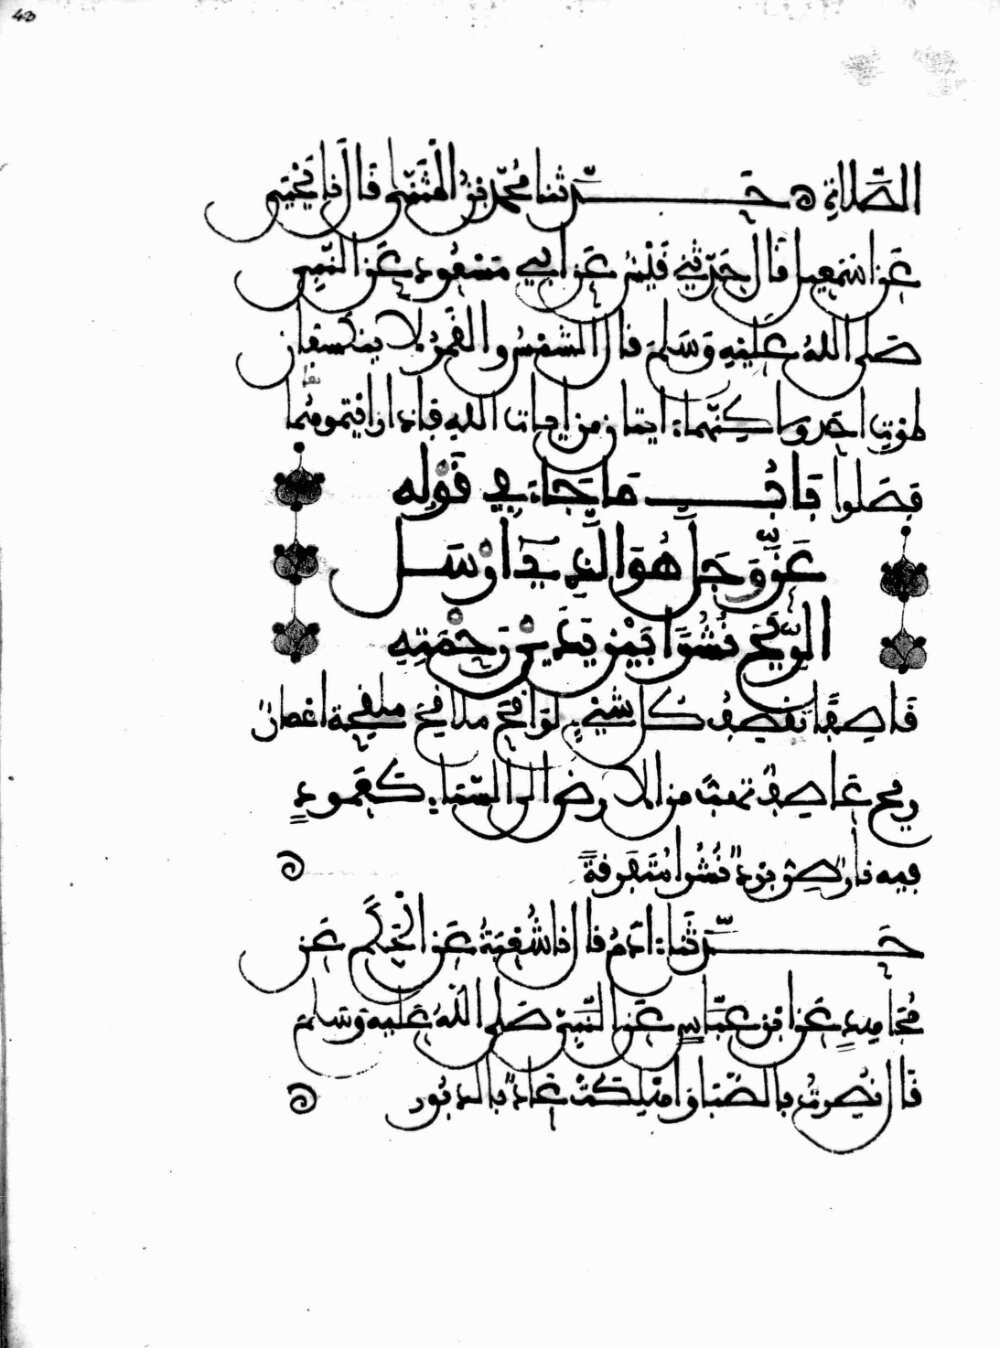 43
الصَّلَاةِ ه حَدَّثنا مُحَمّد بْنُ الْمُثَنَّى قَالَ نا يَحْيَى
عَن اسْمَعِيل قَالَ حَدّثَنِي قَيْسٌ عَن أبِي مَسْعُودٍ عَنِ النَّبِيِّ
صَلى اللهُ عَلَيْهِ وَسَلمَ قَالَ الشَّمْسُ والقَمَرُ لا ينكَسِفَانِ
لِمَوْتِ احَدٍ وَلَكِنَّهُمَا ايتان من ايات اللهِ فإذا رَايْتموهُما
فَصَلوا بَابُ مَا جَاءَ فِي قَوْلِهِ
عَزَّ وَجَلَّ هُوَ الَّذِي أرْسَلَ
الرِّيَاحَ نُشُرًا بَيْنَ يَدَيْ رَحْمَتِهِ
قَاصِفًا تَقْصِفُ كُلَّ شَيْءٍ لَوَاقِحَ مَلَاقِحَ مُلْقِحَة اعْصَارٌ
رِيحٌ عَاصِفٌ تَهُبُّ مِنَ الأَرضِ الى السَّمَاءِ كَعَمُودٍ
فِيهِ نَارٌ صِرٌّ بَرْدٌ نُشُرًا مُتَفَرِقَةً
حَدَّثَنا آدَمُ قَالَ نا شُعْبَةُ عَنِ الْحَكَمِ عَن
مُجَاهِدٍ عَنِ ابْنِ عَبَّاسٍ عَنِ النَّبِيِّ صَلى اللهُ عَلَيْهِ وَسَلمَ
قَالَ نُصِرْتُ بِالصَّبَا وَأُهْلِكَتْ عَادٌ بالدبُور